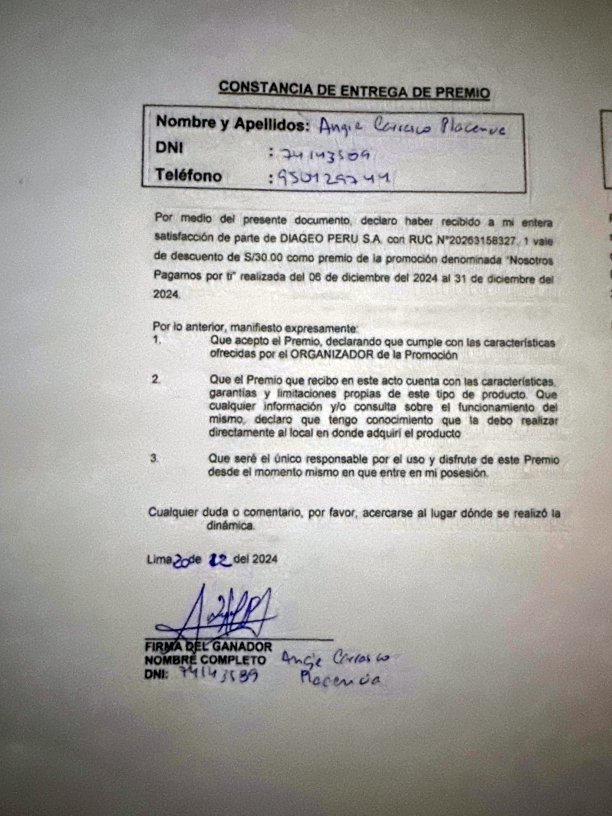 CONSTANCIA DE ENTREGA DE PREMIO
Nombre y Apellidos: Angie Carrasco Placencia
DNI : 74143589
Teléfono : 950129744
Por medio del presente documento, declaro haber recibido a mi entera
satisfacción de parte de DIAGEO PERU S.A. con RUC N°20263158327, 1 vale
de descuento de S/30.00 como premio de la promoción denominada "Nosotros
Pagamos por ti" realizada del 06 de diciembre del 2024 al 31 de diciembre del
2024.
Por lo anterior, manifiesto expresamente:
1. Que acepto el Premio, declarando que cumple con las características
ofrecidas por el ORGANIZADOR de la Promoción
2. Que el Premio que recibo en este acto cuenta con las características,
garantías y limitaciones propias de este tipo de producto. Que
cualquier información y/o consulta sobre el funcionamiento del
mismo, declaro que tengo conocimiento que la debo realizar
directamente al local en donde adquirí el producto
3. Que seré el único responsable por el uso y disfrute de este Premio
desde el momento mismo en que entre en mi posesión.
Cualquier duda o comentario, por favor, acercarse al lugar dónde se realizó la
dinámica.
Lima 20 de 12 del 2024
FIRMA DEL GANADOR
NOMBRE COMPLETO Angie Carrasco
Placencia
DNI: 74143589